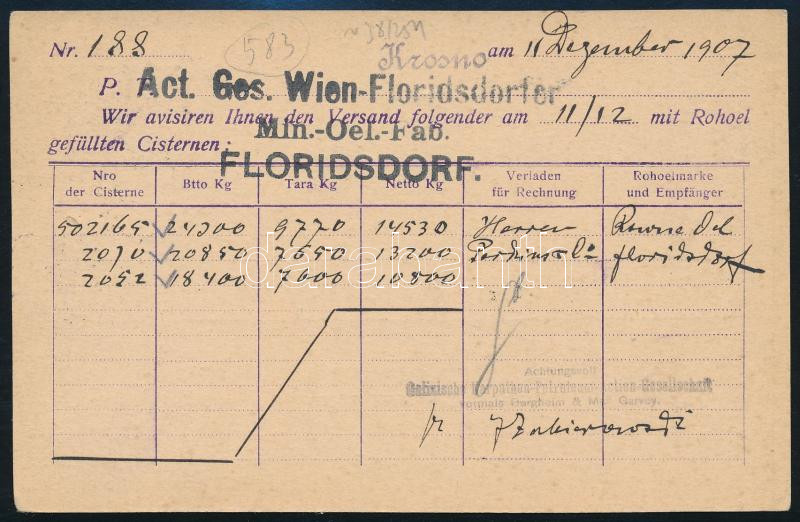 Nr. 188
583
Krosno am 11 Dezember 1907
P. T. Act. Ges. Wien-Floridsdorfer
Wir avisiren Ihnen den Versand folgender am 11/12 mit Rohoel
Min.-Oel.-Fab.
gefüllten Cisternen:
FLORIDSDORF.
Nro der Cisterne Btto Kg Tara Kg Netto Kg Verladen für Rechnung Rohoelmarke und Empfänger
502165 24300 9770 14530 Herren
2070 20850 7650 13200 Perkins & Co Floridsdorf
2052 18400 7600 10800
darabanth.com
Achtungsvoll
Galizische Karpathen-Petroleum-Actien-Gesellschaft
vormals Bergheim & Mac Garvey.